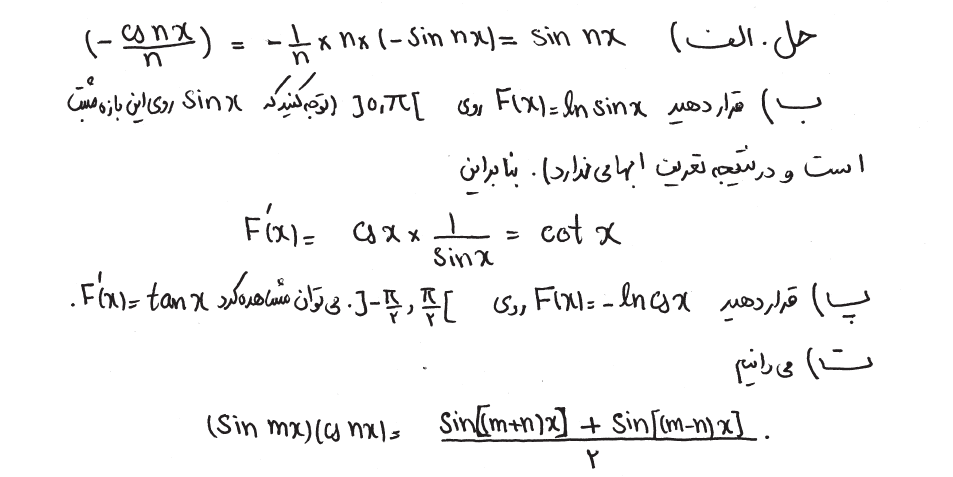 حل. الف) (-cos nx/n) = -1/n × n × (-sin nx) = sin nx
ب) قرار دهید F(x) = ln sin x روی ]0,π[ (توجه کنید که sin x روی این بازه مثبت
است و در نتیجه تعریف ابهامی ندارد). بنابراین
F'(x) = cos x × 1/sin x = cot x
پ) قرار دهید F(x) = -ln cos x روی ]-π/۲, π/۲[. می‌توان مشاهده کرد F'(x) = tan x.
ت) می دانیم
(sin mx)(cos nx) = sin[(m+n)x] + sin[(m-n)x] / ۲.